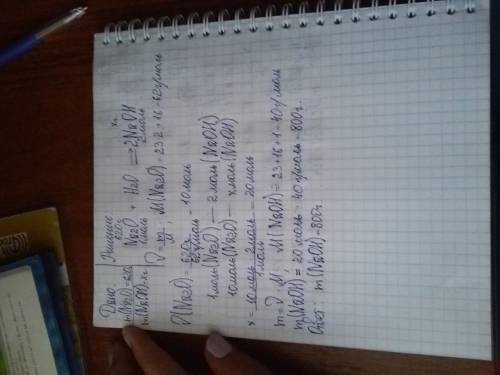 Дано: Решение
m(Na2O)=620г 620г xг
m(NaOH)-xг Na2O + H2O ⟹ 2NaOH
1моль 2моль
ν=m/M; M(Na2O)=23·2+16=62г/моль
ν(Na2O)=620г/62г/моль=10моль
1моль(Na2O) — 2моль(NaOH)
10моль(Na2O) — xмоль(NaOH)
x=10моль·2моль/1моль=20моль
m=ν·M; M(NaOH)=23+16+1=40г/моль
m(NaOH)=20моль·40г/моль=800г
Ответ: m(NaOH)=800г.